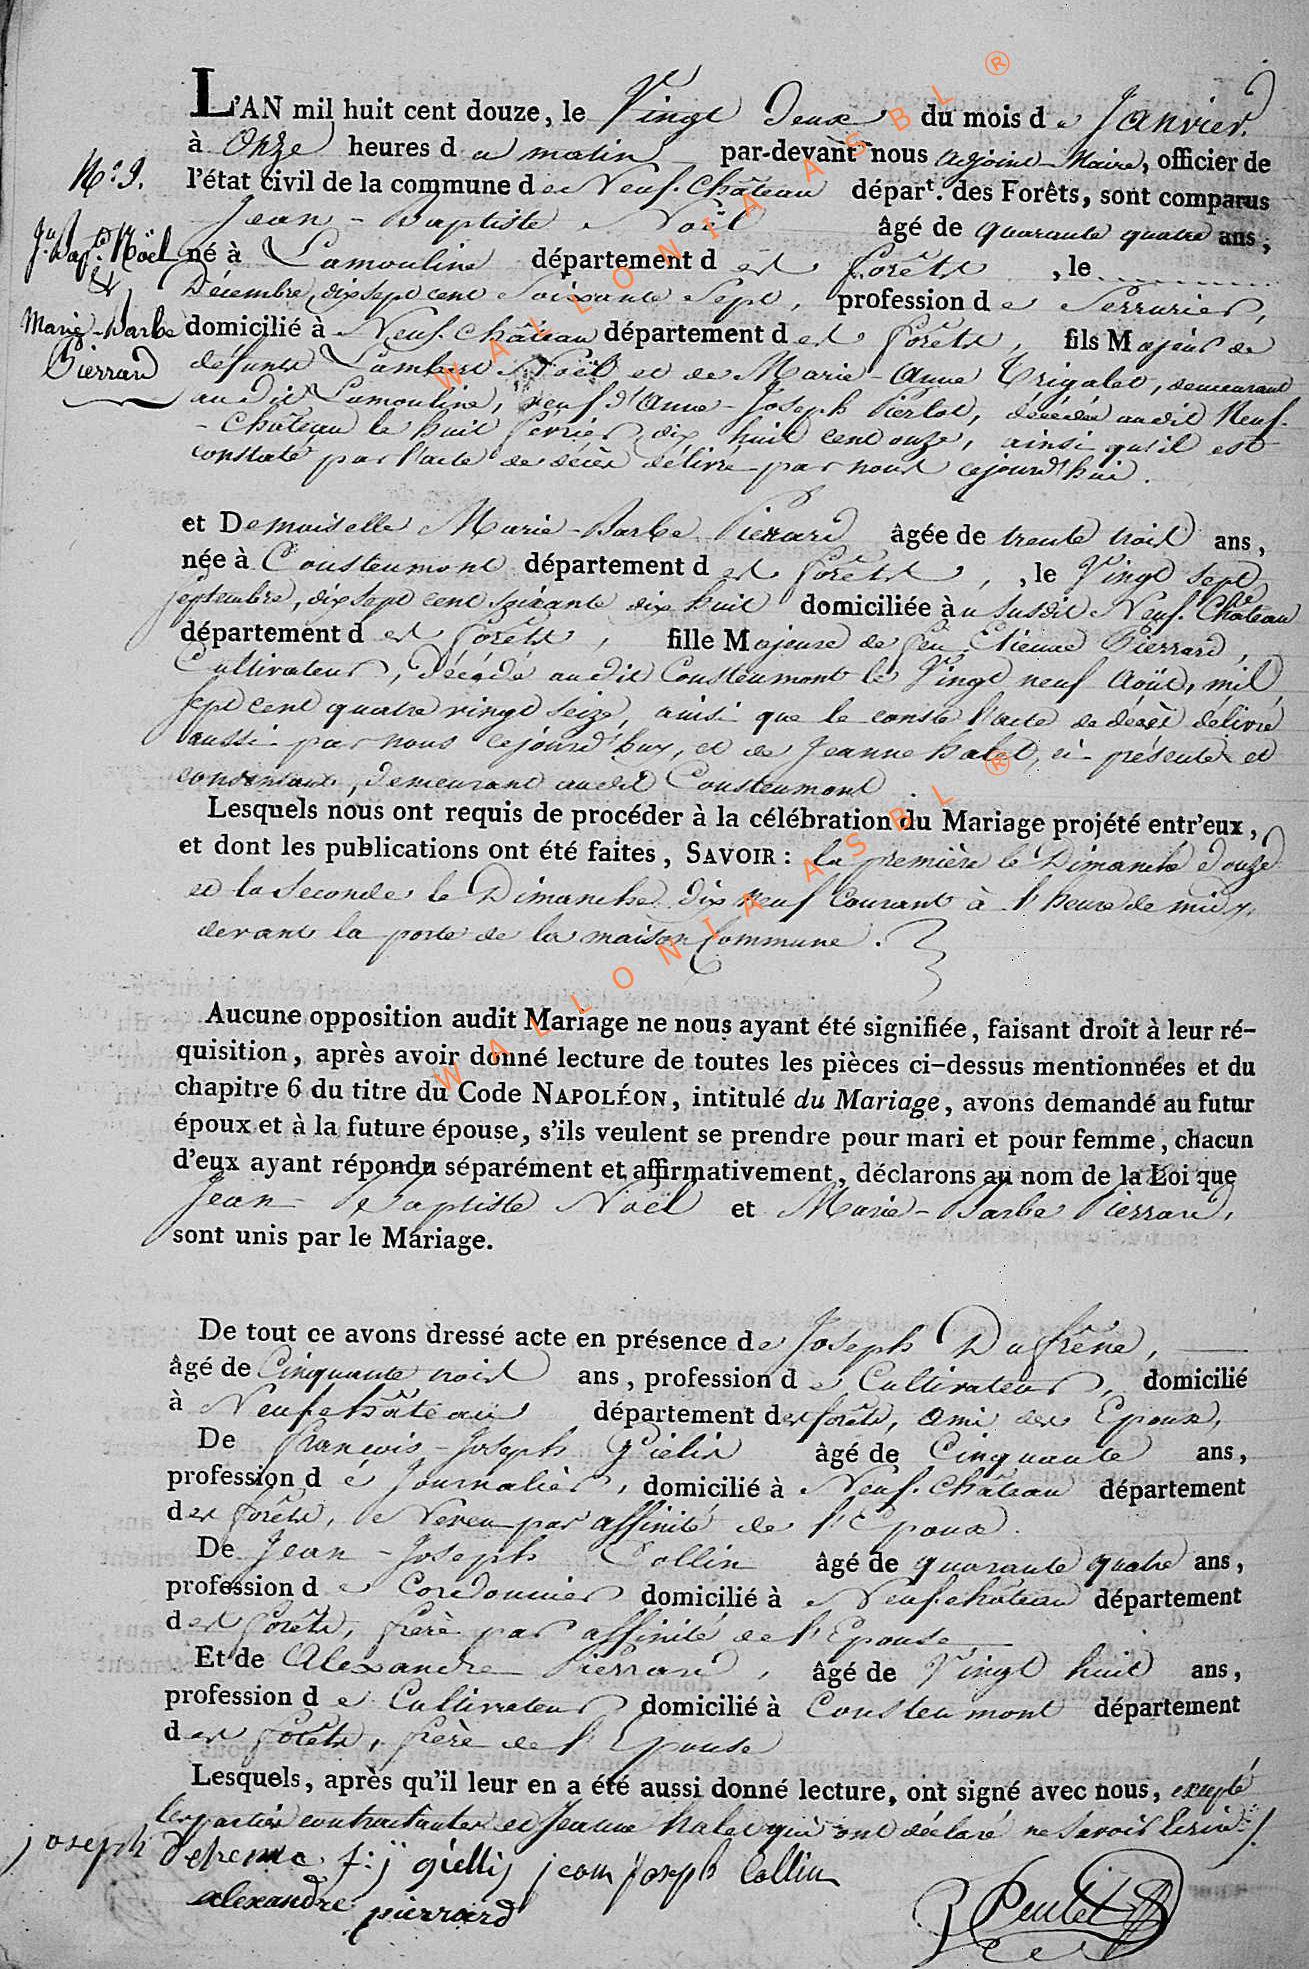 L'AN mil huit cent douze, le Vingt Deux du mois de Janvier,
à Onze heures du matin par-devant nous adjoint Maire, officier de
N.° 9. l'état civil de la commune de Neuf-Château départ.t des Forêts, sont comparus
Jean-Baptiste Noël âgé de quarante quatre ans,
J.n Bap.te Noël né à Lamouline département des forêts, le
& Décembre, dix sept cent soixante sept, profession de Serrurier,
Marie-Barbe domicilié à Neuf-Château département des forêts, fils Majeur de
Pierrard défunt Lambert Noël et de Marie-Anne Trigalet, demeurant
audit Lamouline, veuf d'Anne-Joseph Pierlot, décédée audit Neuf-
-Château le huit fevrier dix huit cent onze, ainsi qu'il est
constaté par l'acte de décès délivré par nous cejourd'hui.
et Demoiselle Marie-Barbe Pierrard âgée de trente trois ans,
née à Cousteumont département des forêts, le Vingt sept
septembre, dix sept cent soixante dix huit domiciliée au susdit Neuf-Château
département des forêts, fille Majeure de feu Etienne Pierrard,
Cultivateur, Décédé audit Cousteumont le Vingt neuf Août, mil
sept cent quatre vingt seize, ainsi que le conste l'acte de décès délivré
aussi par nous cejourd'huy, et de Jeanne halet, ci-présente et
consentante, demeurant audit Cousteumont
Lesquels nous ont requis de procéder à la célébration du Mariage projété entr'eux,
et dont les publications ont été faites, SAVOIR : la première le Dimanche douze
et la seconde le Dimanche dix neuf Courant à l'heure de midy,
devant la porte de la maison Commune.
Aucune opposition audit Mariage ne nous ayant été signifiée, faisant droit à leur ré-
quisition, après avoir donné lecture de toutes les pièces ci-dessus mentionnées et du
chapitre 6 du titre du Code NAPOLÉON, intitulé du Mariage, avons demandé au futur
époux et à la future épouse, s'ils veulent se prendre pour mari et pour femme, chacun
d'eux ayant répondu séparément et affirmativement, déclarons au nom de la Loi que
Jean-Baptiste Noël et Marie-Barbe Pierrard,
sont unis par le Mariage.
De tout ce avons dressé acte en présence de Joseph Dufrêne,
âgé de Cinquante trois ans, profession de Cultivateur, domicilié
à Neufchâteau département des forêts, ami des Epoux,
De françois-Joseph Gielis âgé de Cinquante ans,
profession de Journalier, domicilié à Neuf-Château département
des forêts, Neveu par affinité de l'Epoux.
De Jean-Joseph Collin âgé de quarante quatre ans,
profession de Cordonnier domicilié à Neufchâteau département
des forêts, frère par affinité de l'Epouse
Et de Alexandre Pierrard, âgé de Vingt huit ans,
profession de Cultivateur domicilié à Cousteumont département
des forêts, frère de l'Epouse
Lesquels, après qu'il leur en a été aussi donné lecture, ont signé avec nous, excepté
les parties contractantes et Jeanne halet qui ont déclaré ne savoir Ecrire./.
joseph Defrenne f: j gielis jean joseph Collin
alexandre pierrard
WALLONIA ASBL ®
WALLONIA ASBL ®